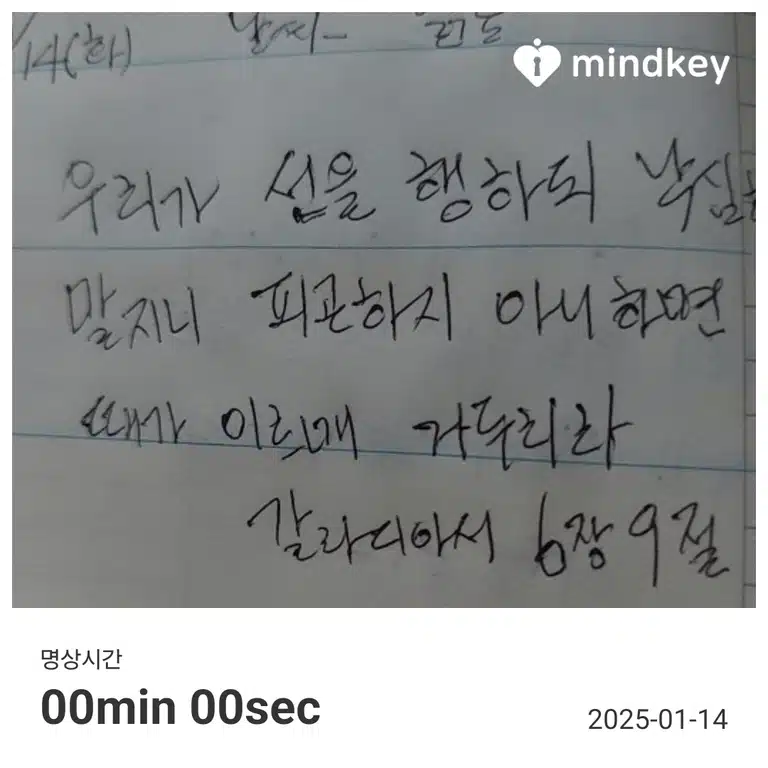 14(화) 날씨-
mindkey
우리가 선을 행하되 낙심
말지니 피곤하지 아니하면
때가 이르매 거두리라
갈라디아서 6장 9절
명상시간
00min 00sec
2025-01-14